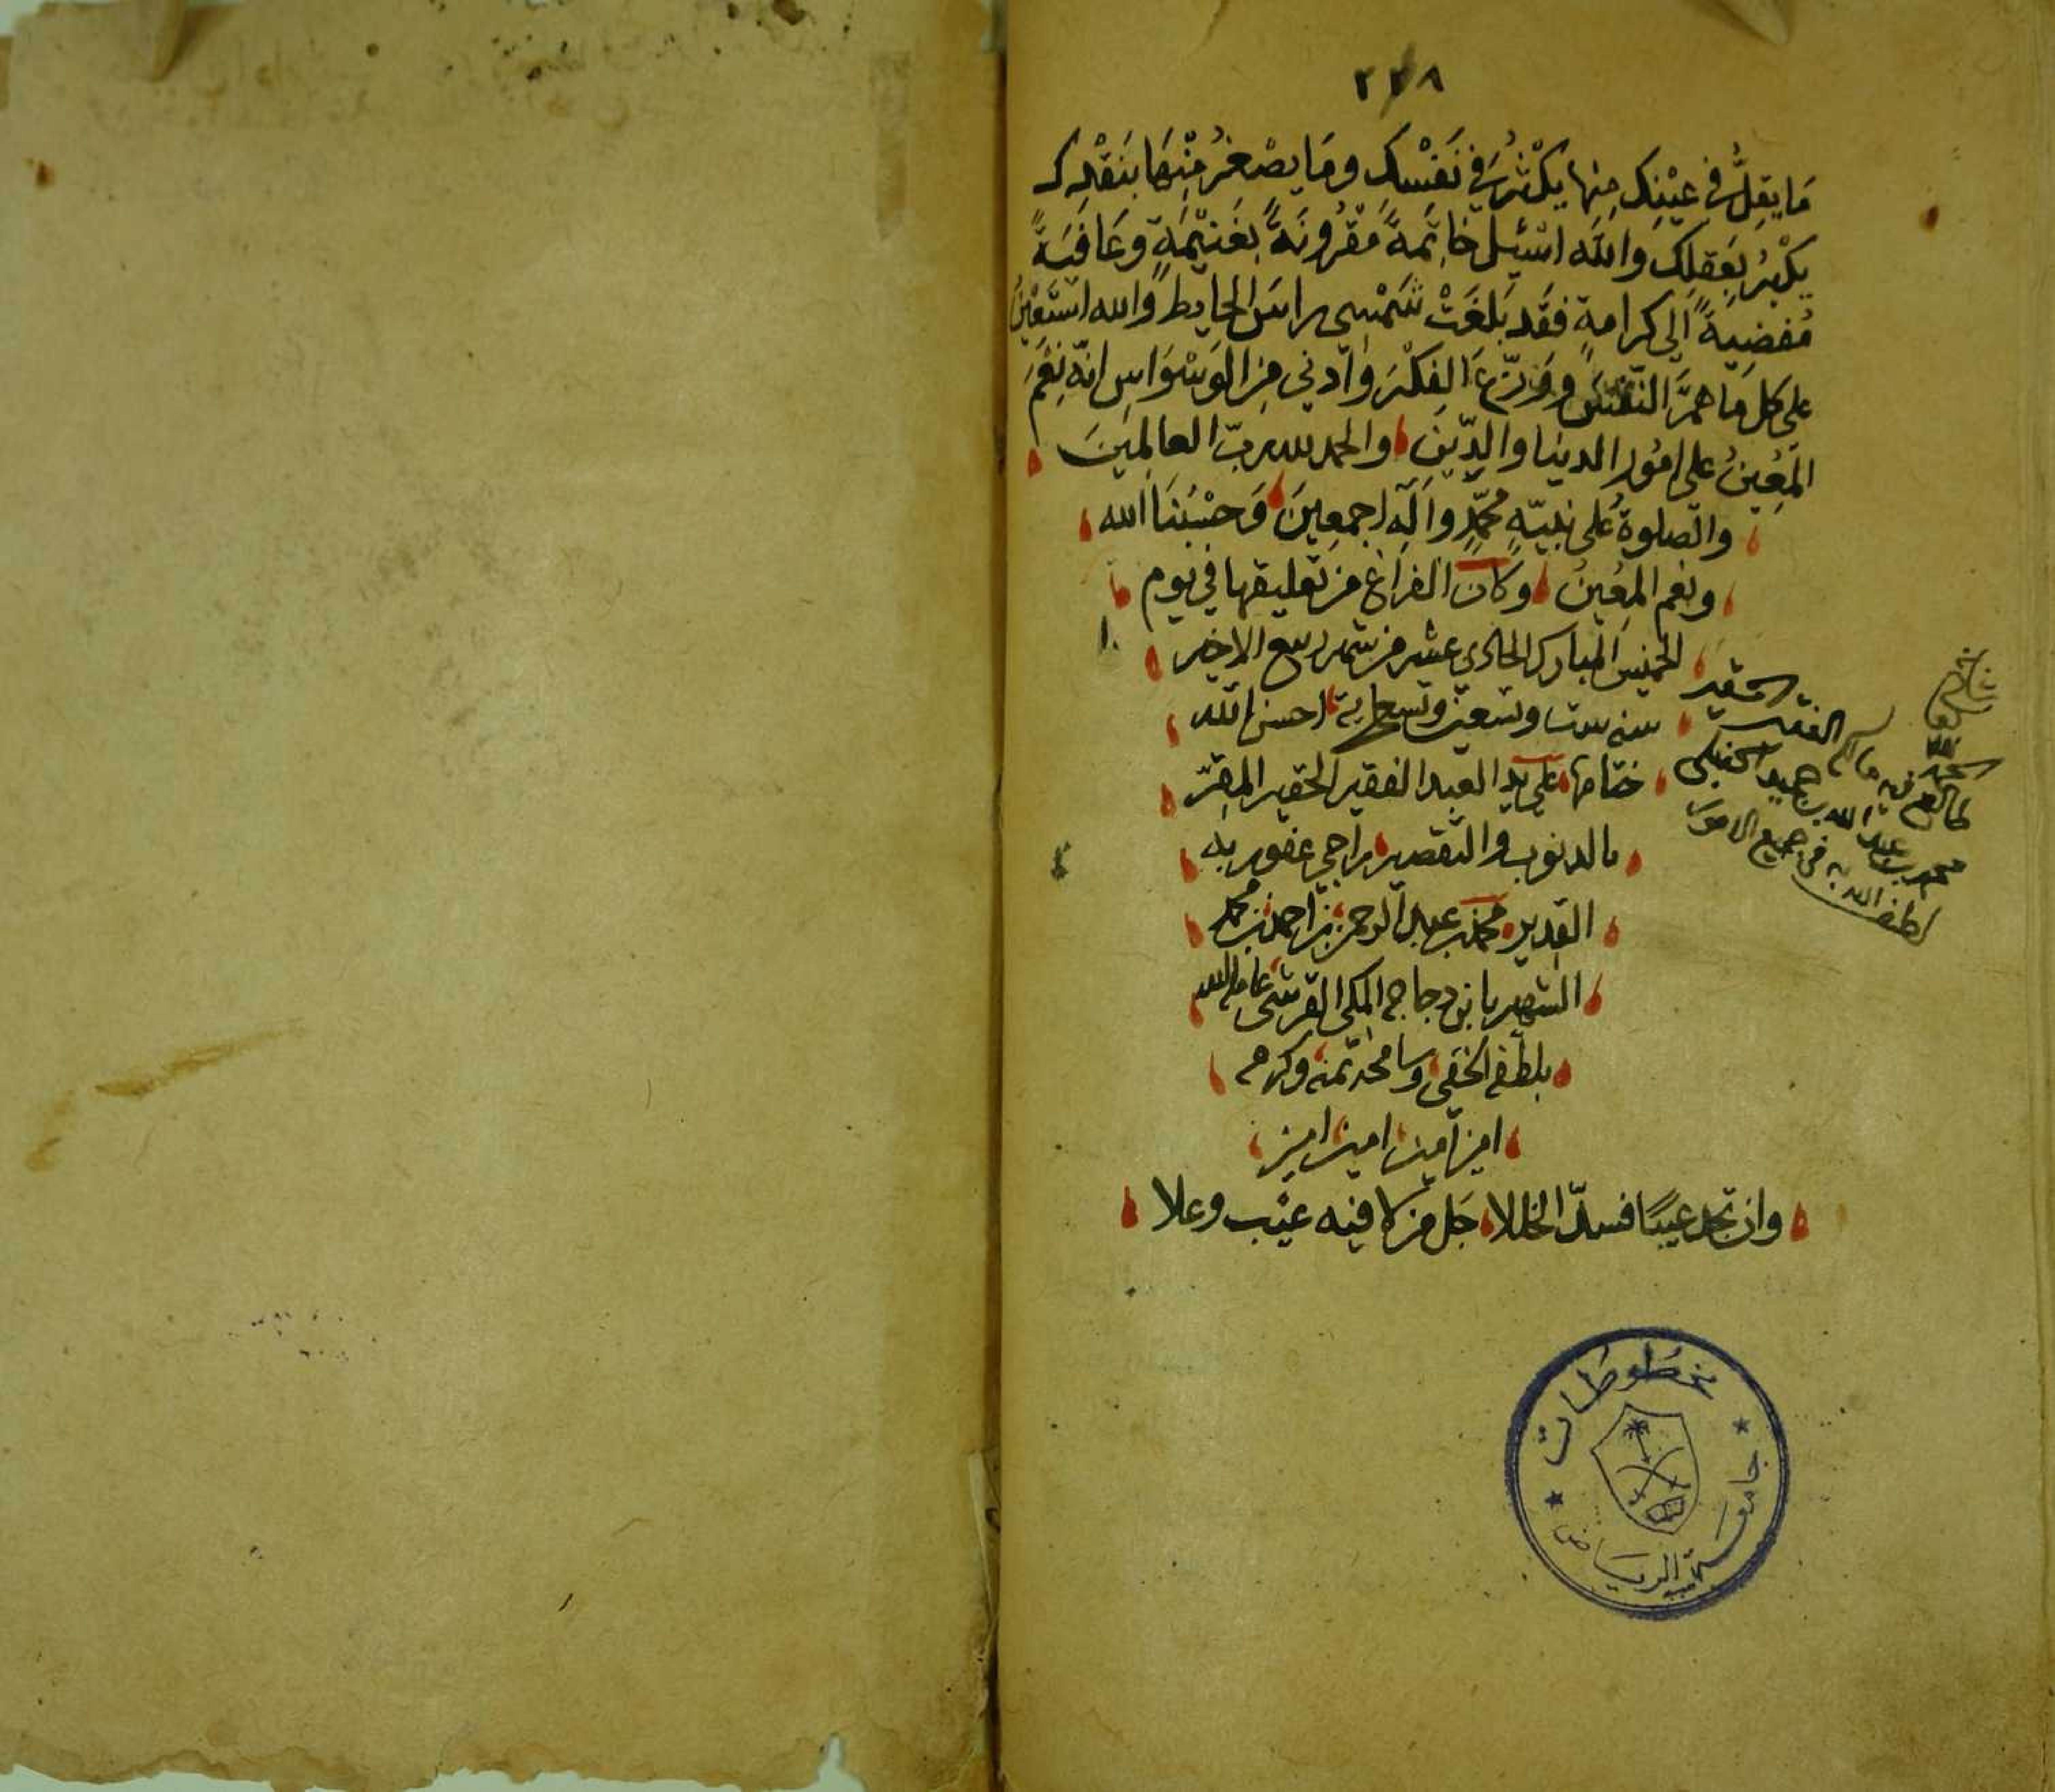 ٢٢٨
مَا يقِلُّ في عيْنِك مِنها يكْثُر في نَفسْكِ ومَا يصْغرُ مِنْهَا بنَقْدِك
يكْبُر بعَقلِك والله اسْئِل خاتِمَةً مَقْرُونَةً بغَنيْمَةٍ وعَافيَةً
مُفضِيَةً الى كرامةٍ فقد بَلغَتْ شمْسِي راسَ الحايط والله استَعْينُ
على كل مَا همَّ النّفسَ ووزّع الفِكْرَ وادنى من الوَسْوَاسِ انّه نِعْمَ
المُعِينُ على امُور الدينا والدّينِ والحمد لله ربّ العالمِينَ
والصلوةُ على نبيّهِ محمّدٍ وآلِه اجمعِينَ وَحسْبُنَا الله
ونعم المُعِينُ وكانَ الفراغ من تعليقها في يوم
الخميس المبارك الحادي عشر من شهر ربيع الاخير
سنه ست وتسعين وتسعماية احسن الله
ختامها على يد العبد الفقير الحقير المقرّ
بالذنوب والتقصير راجي عفو ربه
القدير محمد بن عبد الرحمن بن احمد بن محمد
الشهير بابن دجاجه المكي القرشي عامله الله
بلطفه الخفي وسامحه بمنه وكرمه
امين آمين امين امين
وان تجد عيبًا فسدّ الخللا جَل من لا فيه عيْب وعلا
الحمد لله
طالع فيه مالكه الفقير الحقير
محمد بن عبد الله بن حميد الحنبلي
لطف الله به في جميع الامور
مخطوطات
جامعة الرياض